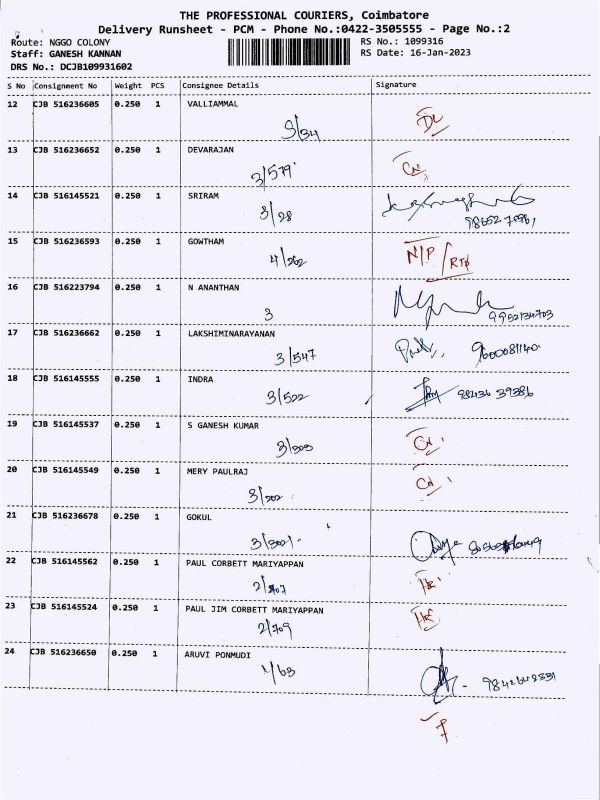 THE PROFESSIONAL COURIERS, Coimbatore
Delivery Runsheet - PCM - Phone No.:0422-3505555 - Page No.:2
Route: NGGO COLONY
RS No.: 1099316
Staff: GANESH KANNAN
RS Date: 16-Jan-2023
DRS No.: DCJB109931602
S No Consignment No Weight PCS Consignee Details Signature
12 CJB 516236605 0.250 1 VALLIAMMAL
3/34 DL
13 CJB 516236652 0.250 1 DEVARAJAN
3/579
14 CJB 516145521 0.250 1 SRIRAM
3/28
15 CJB 516236593 0.250 1 GOWTHAM
4/262 N/P / RTO
16 CJB 516223794 0.250 1 N ANANTHAN
3 9952134703
17 CJB 516236662 0.250 1 LAKSHIMINARAYANAN
3/547 9600081140
18 CJB 516145555 0.250 1 INDRA
3/522 98436 39386
19 CJB 516145537 0.250 1 S GANESH KUMAR
3/303
20 CJB 516145549 0.250 1 MERY PAULRAJ
3/202
21 CJB 516236678 0.250 1 GOKUL
3/302
22 CJB 516145562 0.250 1 PAUL CORBETT MARIYAPPAN
2/707
23 CJB 516145524 0.250 1 PAUL JIM CORBETT MARIYAPPAN
2/709
24 CJB 516236650 0.250 1 ARUVI PONMUDI
1/63
7